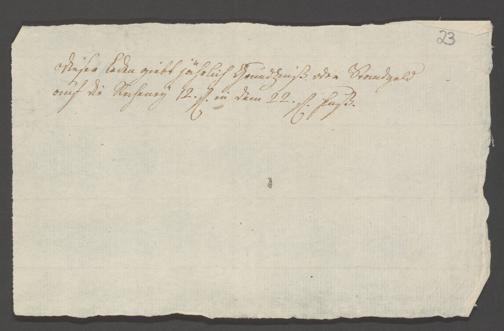 23
Dieser Laden giebt jährlich Grundzinß oder Standgeld
auf die Recheney 12. f. in dem 22. f. Fuß.